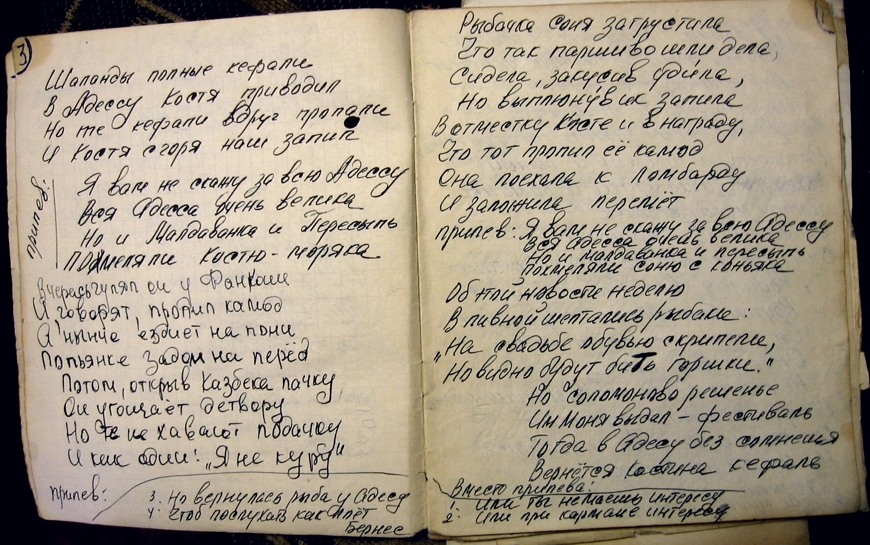 3
Шаланды полные кефали
В Адессу Костя приводил
Но те кефали вдруг пропали
И Костя сгоря наш запил
припев:
Я вам не скажу за всю Адессу
Вся Адесса очень велика
Но и Малдаванка и Пересыпь
Похмеляли Костю-моряка
Вчерась гулял он у Фанкони
И говорят, пропил камод
А нынче ездиет на пони
Попьянке задом на перёд
Потом, открыв Казбека пачку
Он угощает детвору
Но те не хавают подачку
И как один: „Я не курю"
припев:
3. Но вернулась рыба у Адессу
4. Чтоб послухать как поёт
Бернес
Рыбачка Соня загрустила
Что так паршиво шли дела,
Сидела, закусив удила,
Но выплюнув их запила
В отместку Косте и в награду,
Что тот пропил её камод
Она поехала к ломбарду
И заложила перемёт
припев: Я вам не скажу за всю Адессу
Вся Адесса очень велика
Но и малдаванка и пересыпь
Похмеляли Соню с коньяка
Об этой новости неделю
В пивной шептались рыбаки:
„На свадьбе обувью скрипели,
Но видно будут бить горшки."
Но соломоново решенье
Им Моня выдал - фестиваль
Тогда в Адесу без сомнения
Вернётся Костина кефаль
Вместо припева:
1. Или ты не маешь интересу
2. Или при кармане интересу